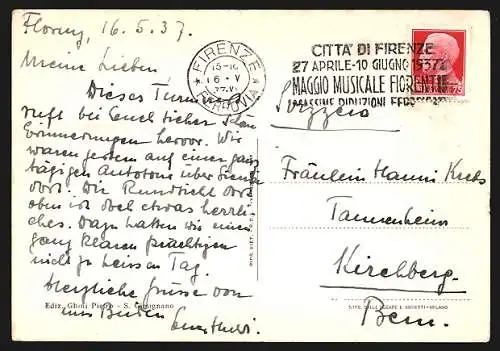 Florenz, 16.5.37.
Meine Lieben
Dieses Turmmeer
ruft bei Euch sicher schon
Erinnerungen hervor. Wir
waren gestern auf einer ganz
tägigen Autotour über Siena
dort. Die Rundsicht dort
oben ist doch etwas herrli-
ches. Dazu hatten wir einen
ganz klaren prächtigen
nicht zu heissen Tag.
Herzliche Grüsse von
uns Beiden
Ediz. Gheli Pietro - S. Gimignano
FIRENZE
15-16
16 · V
FERROVIA
CITTA' DI FIRENZE
27 APRILE-10 GIUGNO 1937
MAGGIO MUSICALE FIORENTINO
MASSIME RIDUZIONI FERROVIARIE
Svizzera
Fräulein Hanni Krebs
Tannenheim
Kirchberg.
Bern.